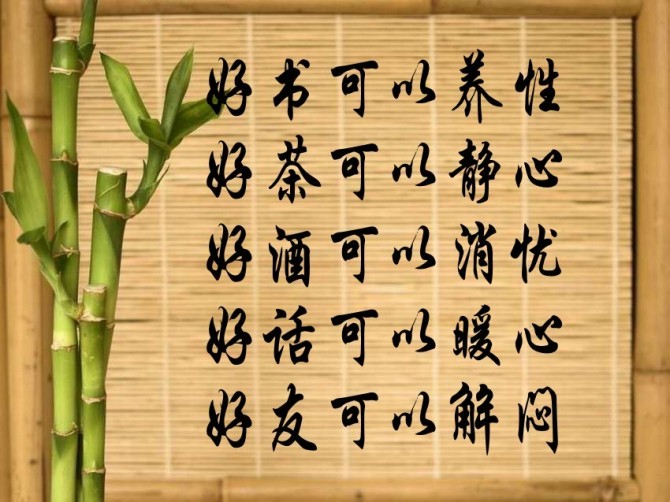 好书可以养性
好茶可以静心
好酒可以消忧
好话可以暖心
好友可以解闷